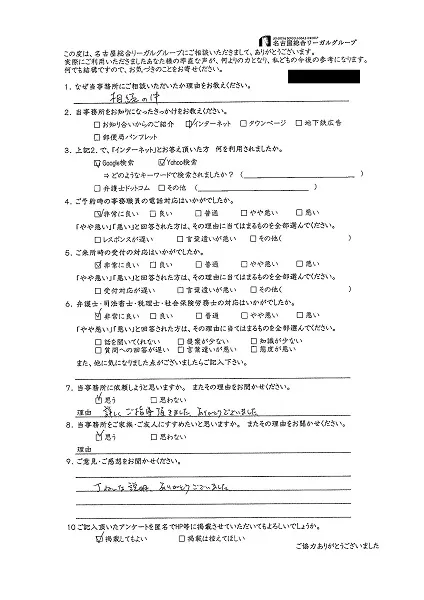 名古屋総合リーガルグループ
この度は、名古屋総合リーガルグループにご相談いただきまして、ありがとうございます。
実際にご利用いただきましたあなた様の率直な声が、何よりの力となり、私どもの今後の参考になります。
何でも結構ですので、お気づきのことをお寄せください。
1. なぜ当事務所にご相談いただいたか理由をお教えください。
相続の件
2. 当事務所をお知りになったきっかけをお教えください。
□お知り合いからのご紹介 ☑インターネット □タウンページ □地下鉄広告
□郵便局パンフレット
3. 上記2.で、「インターネット」とお答え頂いた方 何を利用されましたか。
☑Google検索 ☑Yahoo検索
⇒どのようなキーワードで検索されましたか?( )
□弁護士ドットコム □その他( )
4. ご予約時の事務職員の電話対応はいかがでしたか。
☑非常に良い □良い □普通 □やや悪い □悪い
「やや悪い」「悪い」と回答された方は、その理由に当てはまるものを全部選んでください。
□レスポンスが遅い □言葉遣いが悪い □その他( )
5. ご来所時の受付の対応はいかがでしたか。
☑非常に良い □良い □普通 □やや悪い □悪い
「やや悪い」「悪い」と回答された方は、その理由に当てはまるものを全部選んでください。
□受付対応が遅い □言葉遣いが悪い □その他( )
6. 弁護士・司法書士・税理士・社会保険労務士の対応はいかがでしたか。
☑非常に良い □良い □普通 □やや悪い □悪い
「やや悪い」「悪い」と回答された方は、その理由に当てはまるものを全部選んでください。
□話を聞いてくれない □提案が少ない □知識が少ない
□質問への回答が遅い □言葉遣いが悪い □態度が悪い
また、他に気になりました点がございましたらご記入下さい。
7. 当事務所に依頼しようと思いますか。 またその理由をお聞かせください。
☑思う □思わない
理由 詳しくご指導頂きました。ありがとうございました
8. 当事務所をご家族・ご友人にすすめたいと思いますか。 またその理由をお聞かせください。
☑思う □思わない
理由
9. ご意見・ご感想をお聞かせください。
丁ねいな説明、ありがとうございました
10 ご記入頂いたアンケートを匿名でHP等に掲載させていただいてもよろしいでしょうか。
☑掲載してもよい □掲載は控えてほしい
ご協力ありがとうございました